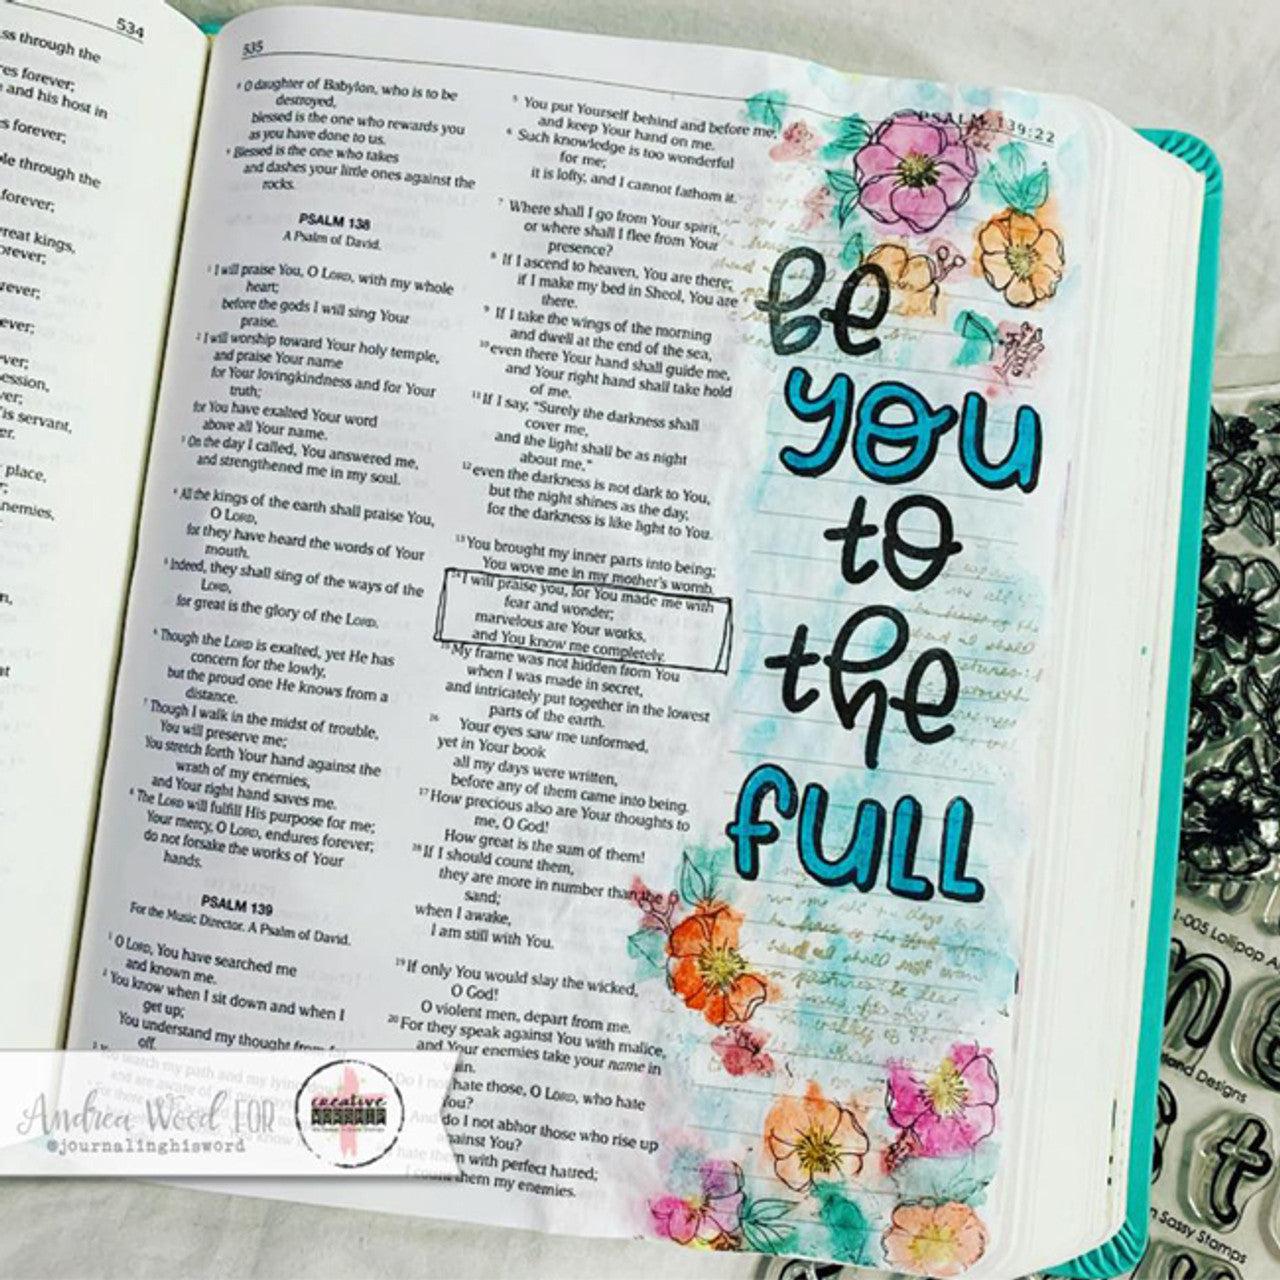 534
ss through the
es forever;
and his host in
s forever;
le through the
forever;
reat kings,
orever;
ever;
ever;
rver;
ession,
ver;
is servant,
er.
place,
nemies,
535
⁸ O daughter of Babylon, who is to be
destroyed,
blessed is the one who rewards you
as you have done to us.
⁹ Blessed is the one who takes
and dashes your little ones against the
rocks.
PSALM 138
A Psalm of David.
¹ I will praise You, O LORD, with my whole
heart;
before the gods I will sing Your
praise.
² I will worship toward Your holy temple,
and praise Your name
for Your lovingkindness and for Your
truth;
for You have exalted Your word
above all Your name.
³ On the day I called, You answered me,
and strengthened me in my soul.
⁴ All the kings of the earth shall praise You,
O LORD,
for they have heard the words of Your
mouth.
⁵ Indeed, they shall sing of the ways of the
LORD,
for great is the glory of the LORD.
⁶ Though the LORD is exalted, yet He has
concern for the lowly,
but the proud one He knows from a
distance.
⁷ Though I walk in the midst of trouble,
You will preserve me;
You stretch forth Your hand against the
wrath of my enemies,
and Your right hand saves me.
⁸ The LORD will fulfill His purpose for me;
Your mercy, O LORD, endures forever;
do not forsake the works of Your
hands.
PSALM 139
For the Music Director. A Psalm of David.
¹ O LORD, You have searched me
and known me.
² You know when I sit down and when I
get up;
You understand my thought from
off.
⁵ You put Yourself behind and before me,
and keep Your hand on me.
⁶ Such knowledge is too wonderful
for me;
it is lofty, and I cannot fathom it.
⁷ Where shall I go from Your spirit,
or where shall I flee from Your
presence?
⁸ If I ascend to heaven, You are there;
if I make my bed in Sheol, You are
there.
⁹ If I take the wings of the morning
and dwell at the end of the sea,
¹⁰ even there Your hand shall guide me,
and Your right hand shall take hold
of me.
¹¹ If I say, "Surely the darkness shall
cover me,
and the light shall be as night
about me,"
¹² even the darkness is not dark to You,
but the night shines as the day,
for the darkness is like light to You.
¹³ You brought my inner parts into being;
You wove me in my mother's womb.
¹⁴ I will praise you, for You made me with
fear and wonder;
marvelous are Your works,
and You know me completely.
¹⁵ My frame was not hidden from You
when I was made in secret,
and intricately put together in the lowest
parts of the earth.
¹⁶ Your eyes saw me unformed,
yet in Your book
all my days were written,
before any of them came into being.
¹⁷ How precious also are Your thoughts to
me, O God!
How great is the sum of them!
¹⁸ If I should count them,
they are more in number than the
sand;
when I awake,
I am still with You.
¹⁹ If only You would slay the wicked,
O God!
O violent men, depart from me.
²⁰ For they speak against You with malice,
and Your enemies take your name in
Do I not hate those, O LORD, who hate
You?
And do I not abhor those who rise up
against You?
hate them with perfect hatred;
I count them my enemies.
PSALM 139:22
be
you
to
the
full
Andrea Wood FOR
@journalinghisword
creative
-005 Lollipop
and Designs
n Sassy Stamps